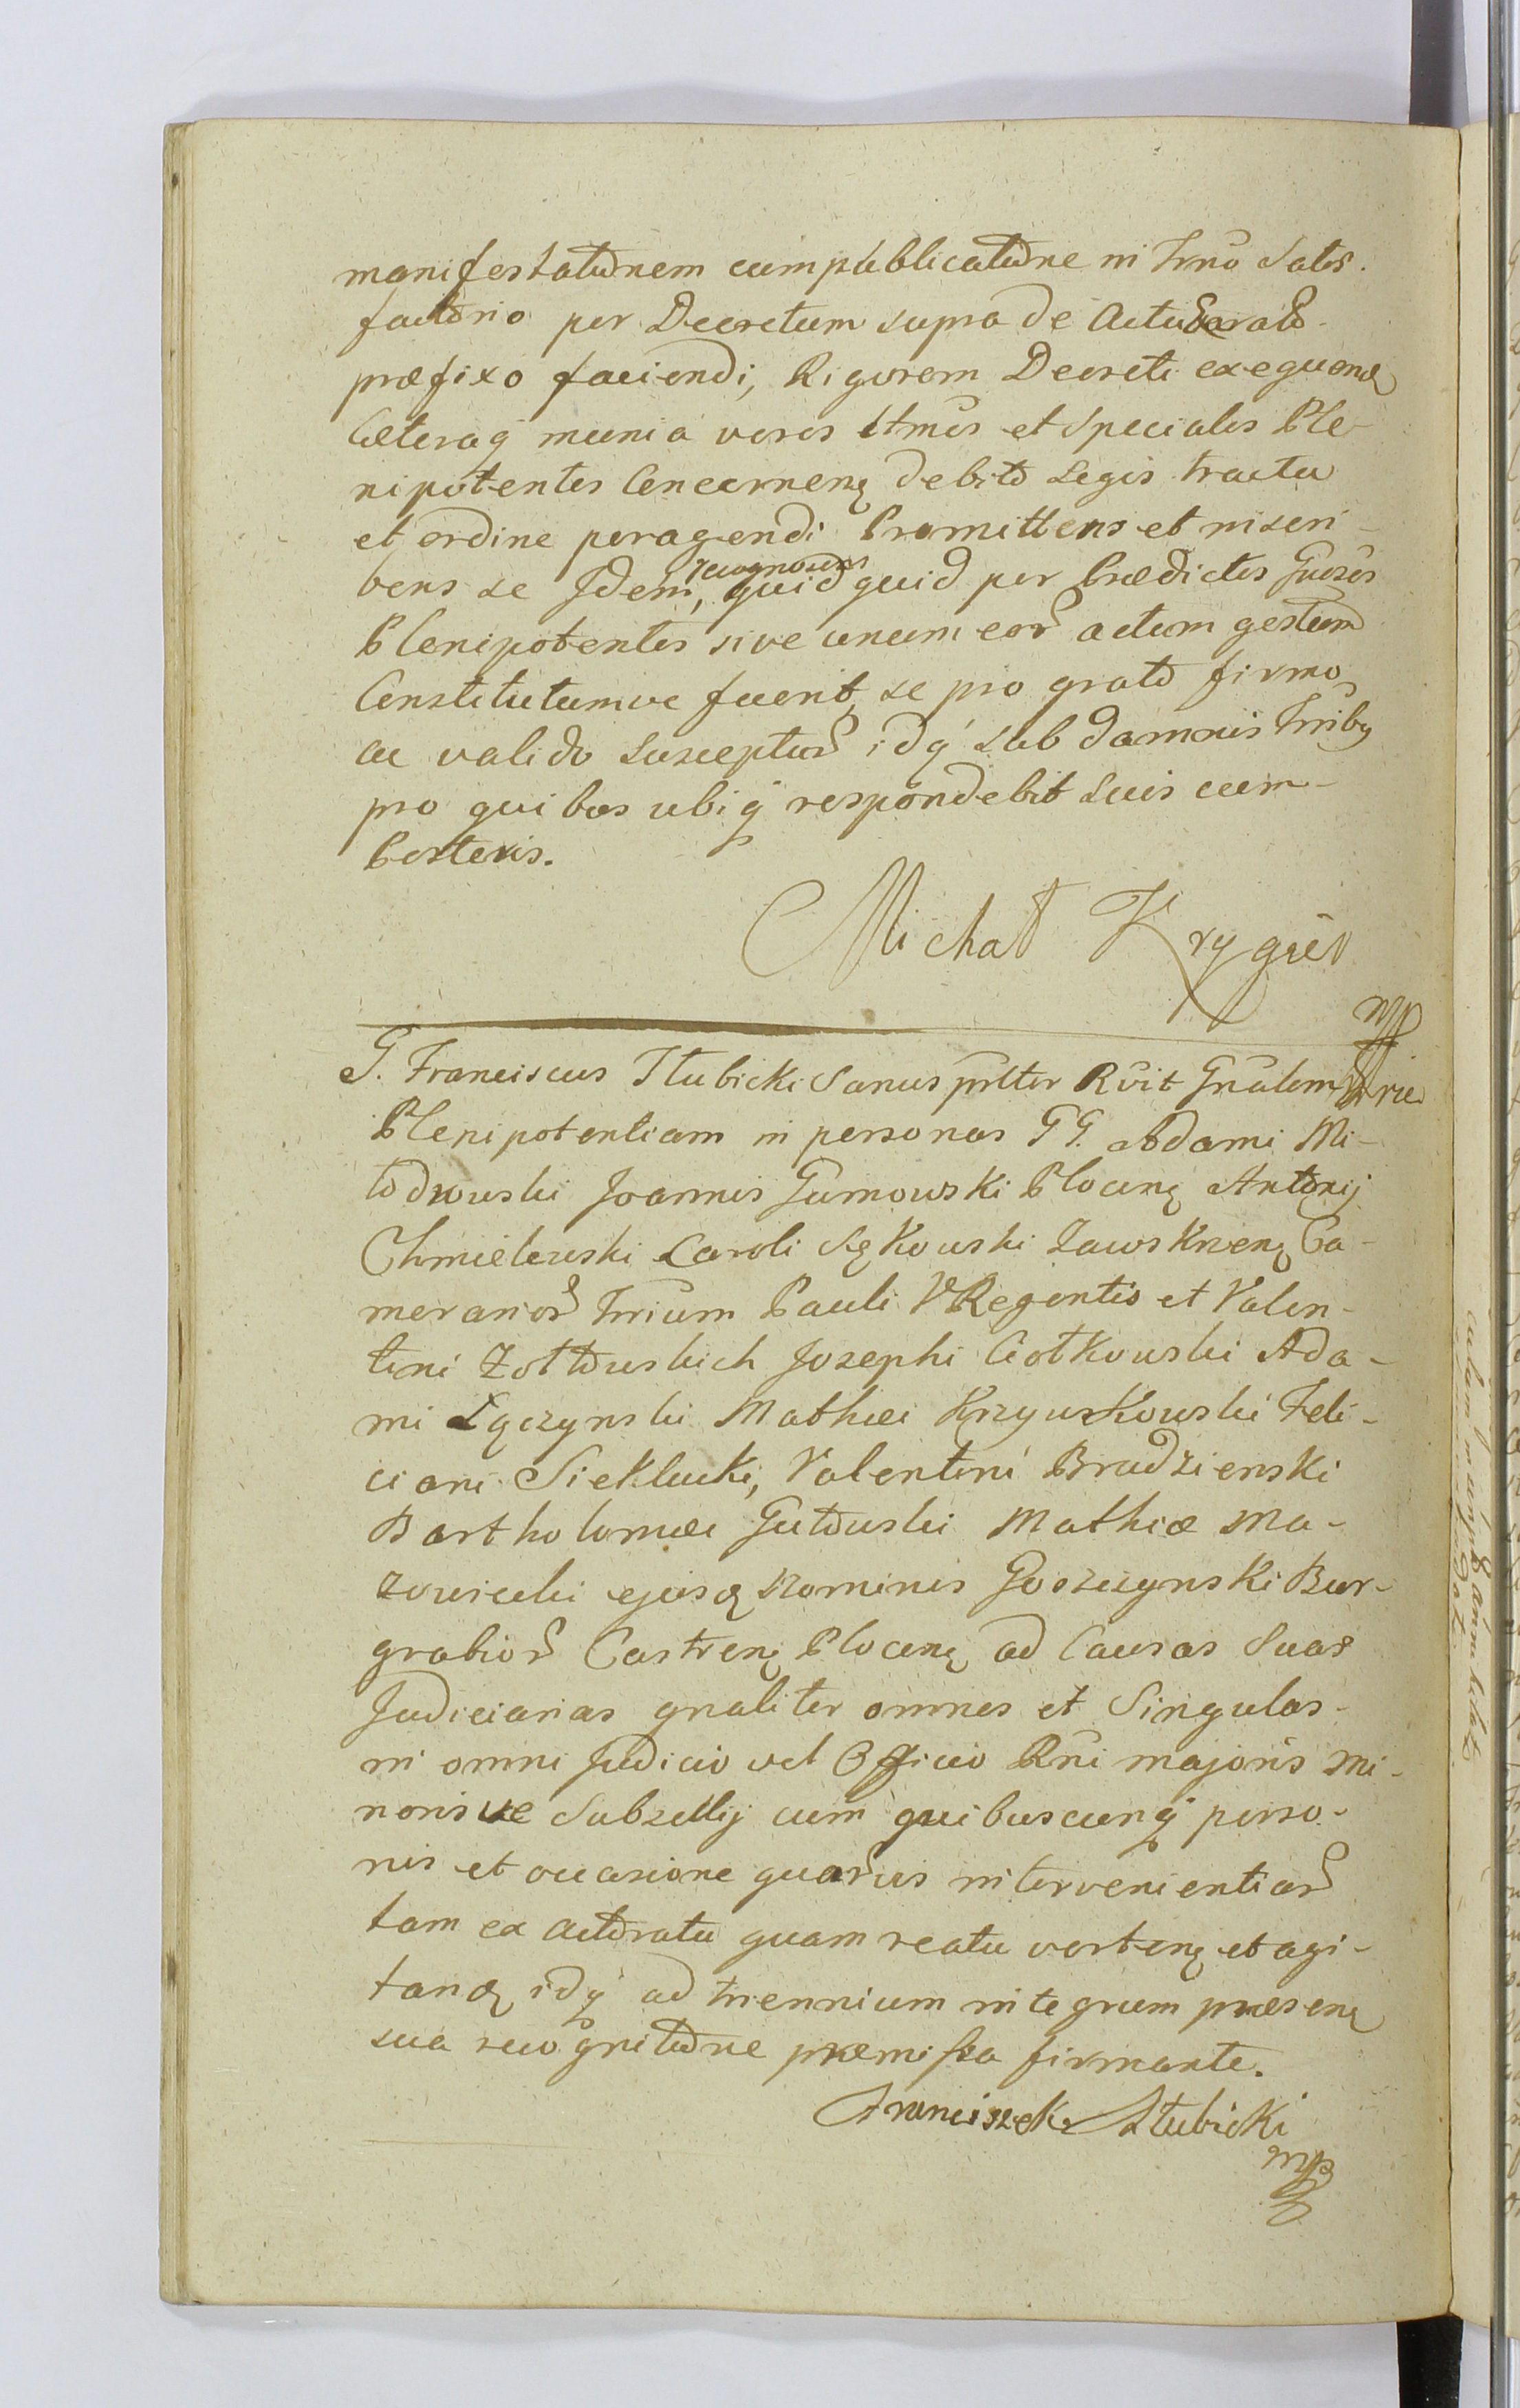 manifestationem cum publicatione in Trno satis-
factorio per Decretum supra de Actu
præfixo faciendi, Rigorem Decreti exequend
Cæteraq munia veros ltmos et speciales Ple-
nipotentes Concernen debito Legis tractu
et ordine peragendi Promittens et inscri-
bens se Idem, recognoscens quid quid per Prædictos Gnosos
Plenipotentes sive unum eor actum gestum
Constitutumve fuerit, se pro grato firmo
ac valido susceptur idq sub damnis Trribq
pro quibus ubiq respondebit suis cum
Posteris.
Michał Krygier
mp
G. Franciscus Słubicki Sanus pnltter Rvit Gnalem
Plenipotentiam in personas GG. Adami Mi-
łodrowski Joannis Gumowski Plocen Antonij
Chmielewski Caroli Sękowski Zawskrzen Ca-
merarior Trrium Pauli VRegentis et Valen-
tini Żołtowskich Josephi Ciołkowski Ada-
mi Łączynski Mathæi Krzywkowski Feli-
ciani Sieklucki, Valentini Brudzienski
Bartholomæi Gutowski Mathiæ Ma-
zowiecki ejusq Nominis Goszczynski Bur-
grabior Castren Plocen ad Causas Suas
Judiciarias gnaliter omnes et Singulas
in omni Judicio vel Officio Rni majoris mi-
norisve Subsellij cum quibuscunq perso-
nis et occasione quarvis intervenientiar
tam ex actoratu quam reatu verten et agi-
tand idq ad triennium integrum præsen
sua recognitione præmissa firmante.
Franciszek Słubicki
mp